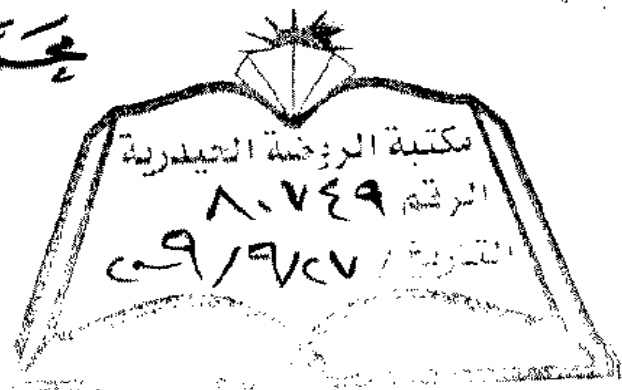 مكتبة الروضة الحيدرية
الرقم ٨٠٧٤٩
التاريخ / ٢٧/٩/٢٠٠٩